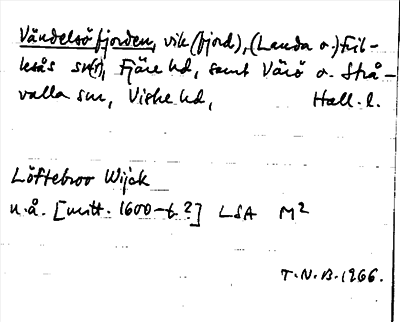 Vändelsöfjorden, vik (fjord), (Landa o.) Fril-
lesås sn(r), Fjäre hd, samt Värö o. Strå-
valla snr, Viske hd, Hall. l.
Löftebroo Wijck
u.å. [mitt. 1600-t.?] LSA M2
T.N.B. 1966.